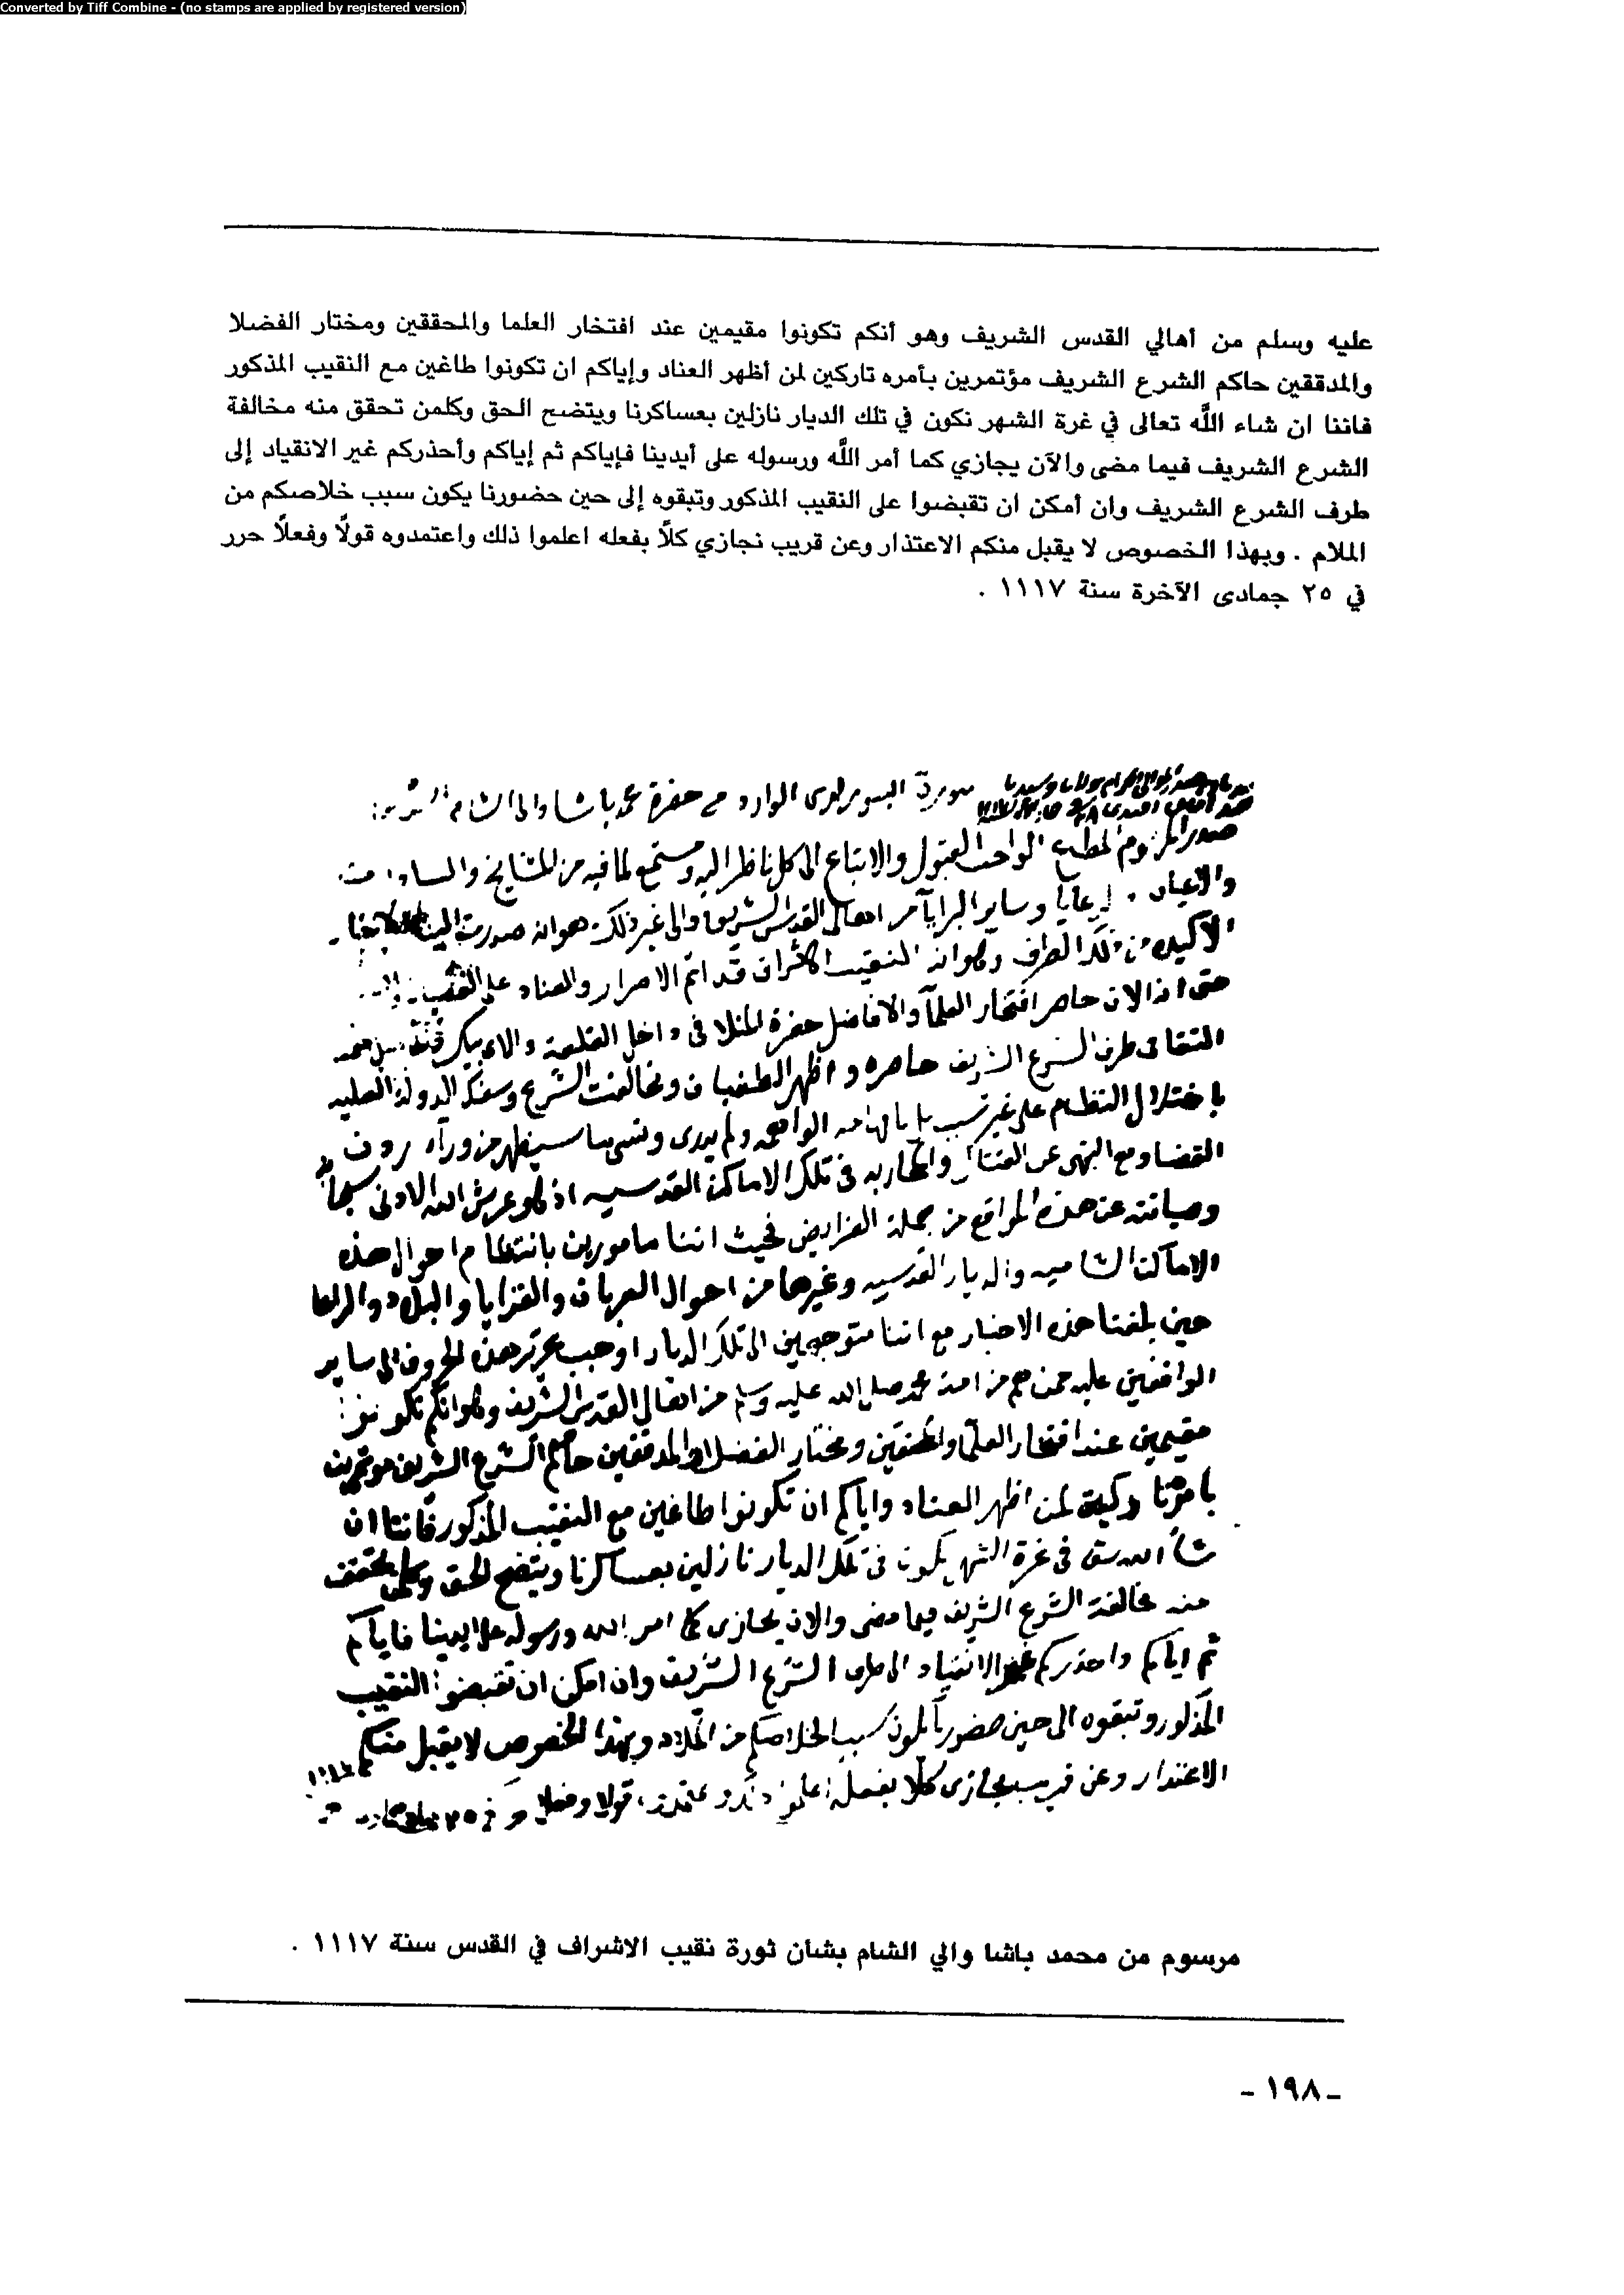 Converted by Tiff Combine - (no stamps are applied by registered version)
عليه وسلم من أهالي القدس الشريف وهو أنكم تكونوا مقيمين عند افتخار العلما والمحققين ومختار الفضلا
والمدققين حاكم الشرع الشريف مؤتمرين بأمره تاركين لمن أظهر العناد وإياكم ان تكونوا طاغين مع النقيب المذكور
فاننا ان شاء الله تعالى في غرة الشهر نكون في تلك الديار نازلين بعساكرنا ويتضح الحق وكلمن تحقق منه مخالفة
الشرع الشريف فيما مضى والآن يجازي كما أمر الله ورسوله على أيدينا فإياكم ثم إياكم وأحذركم غير الانقياد إلى
طرف الشرع الشريف وان أمكن ان تقبضوا على النقيب المذكور وتبقوه إلى حين حضورنا يكون سبب خلاصكم من
الملام . وبهذا الخصوص لا يقبل منكم الاعتذار وعن قريب نجازي كلاً بفعله اعلموا ذلك واعتمدوه قولاً وفعلاً حرر
في ٢٥ جمادى الآخرة سنة ١١١٧ .
الوارد من حضرة محمد باشا والي الشام
الواجب القبول والاتباع الى كل ناظر اليه ومستمع لما فيه من المشايخ
والاعيان وساير البرايا من اهالي القدس الشريف والى غير ذلك هو انه
النقيب الاشراف قد اتم الاصرار والعناد على
حتى اذ الان حاصر افتخار العلما والافاضل حضرة المنلا في داخل القلعة
طرف الشرع الشريف حاصره واظهر الطغيان ومخالفت الشرع الدولة العليه
باختلال النظام على غير ولم يدرى سيظهر من وراه
والمحاربه في تلك الاماكن القدسيه اذ هو عرش الله الادنى
وصيانته عن هذه المواقع من جملة الفرايض فحيث اننا مامورين بانتظام احوال هذه
الاماكن الشاميه والديار القدسيه وغيرها من احوال العربان والقرايا والبلاد
حين بلغنا هذه الاخبار مع اننا متوجهين الى تلك الديار اوجب تحرير هذه الحروف الى ساير
الواقفين عليه ممن هم من امة محمد صلى الله عليه وسلم من اهالي القدس الشريف وهو انكم تكونوا
مقيمين عند افتخار العلما والمحققين ومختار الفضلا والمدققين حاكم الشرع الشريف موتمرين
لمن اظهر العناد واياكم ان تكونوا طاغين مع النقيب المذكور فاننا ان
شا الله في غرة الشهر نكون في تلك الديار نازلين بعساكرنا ويتضح الحق وكلمن تحقق
منه مخالفة الشرع الشريف فيما مضى والان يجازى كما امر الله ورسوله على ايدينا فاياكم
ثم اياكم واحذركم غير الانقياد الى طرف الشرع الشريف وان امكن ان تقبضوا النقيب
المذكور وتبقوه الى حين حضورنا يكون سبب الخلاصكم من الملام وبهذا الخصوص لا يقبل منكم
الاعتذار وعن قريب يجازى كلا بفعله قولا وفعلا
مرسوم من محمد باشا والي الشام بشأن ثورة نقيب الاشراف في القدس سنة ١١١٧ .
- ١٩٨ -